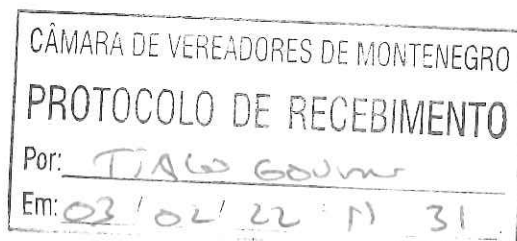 CÂMARA DE VEREADORES DE MONTENEGRO
PROTOCOLO DE RECEBIMENTO
Por: TIAGO
Em: 03/02/22 11 31